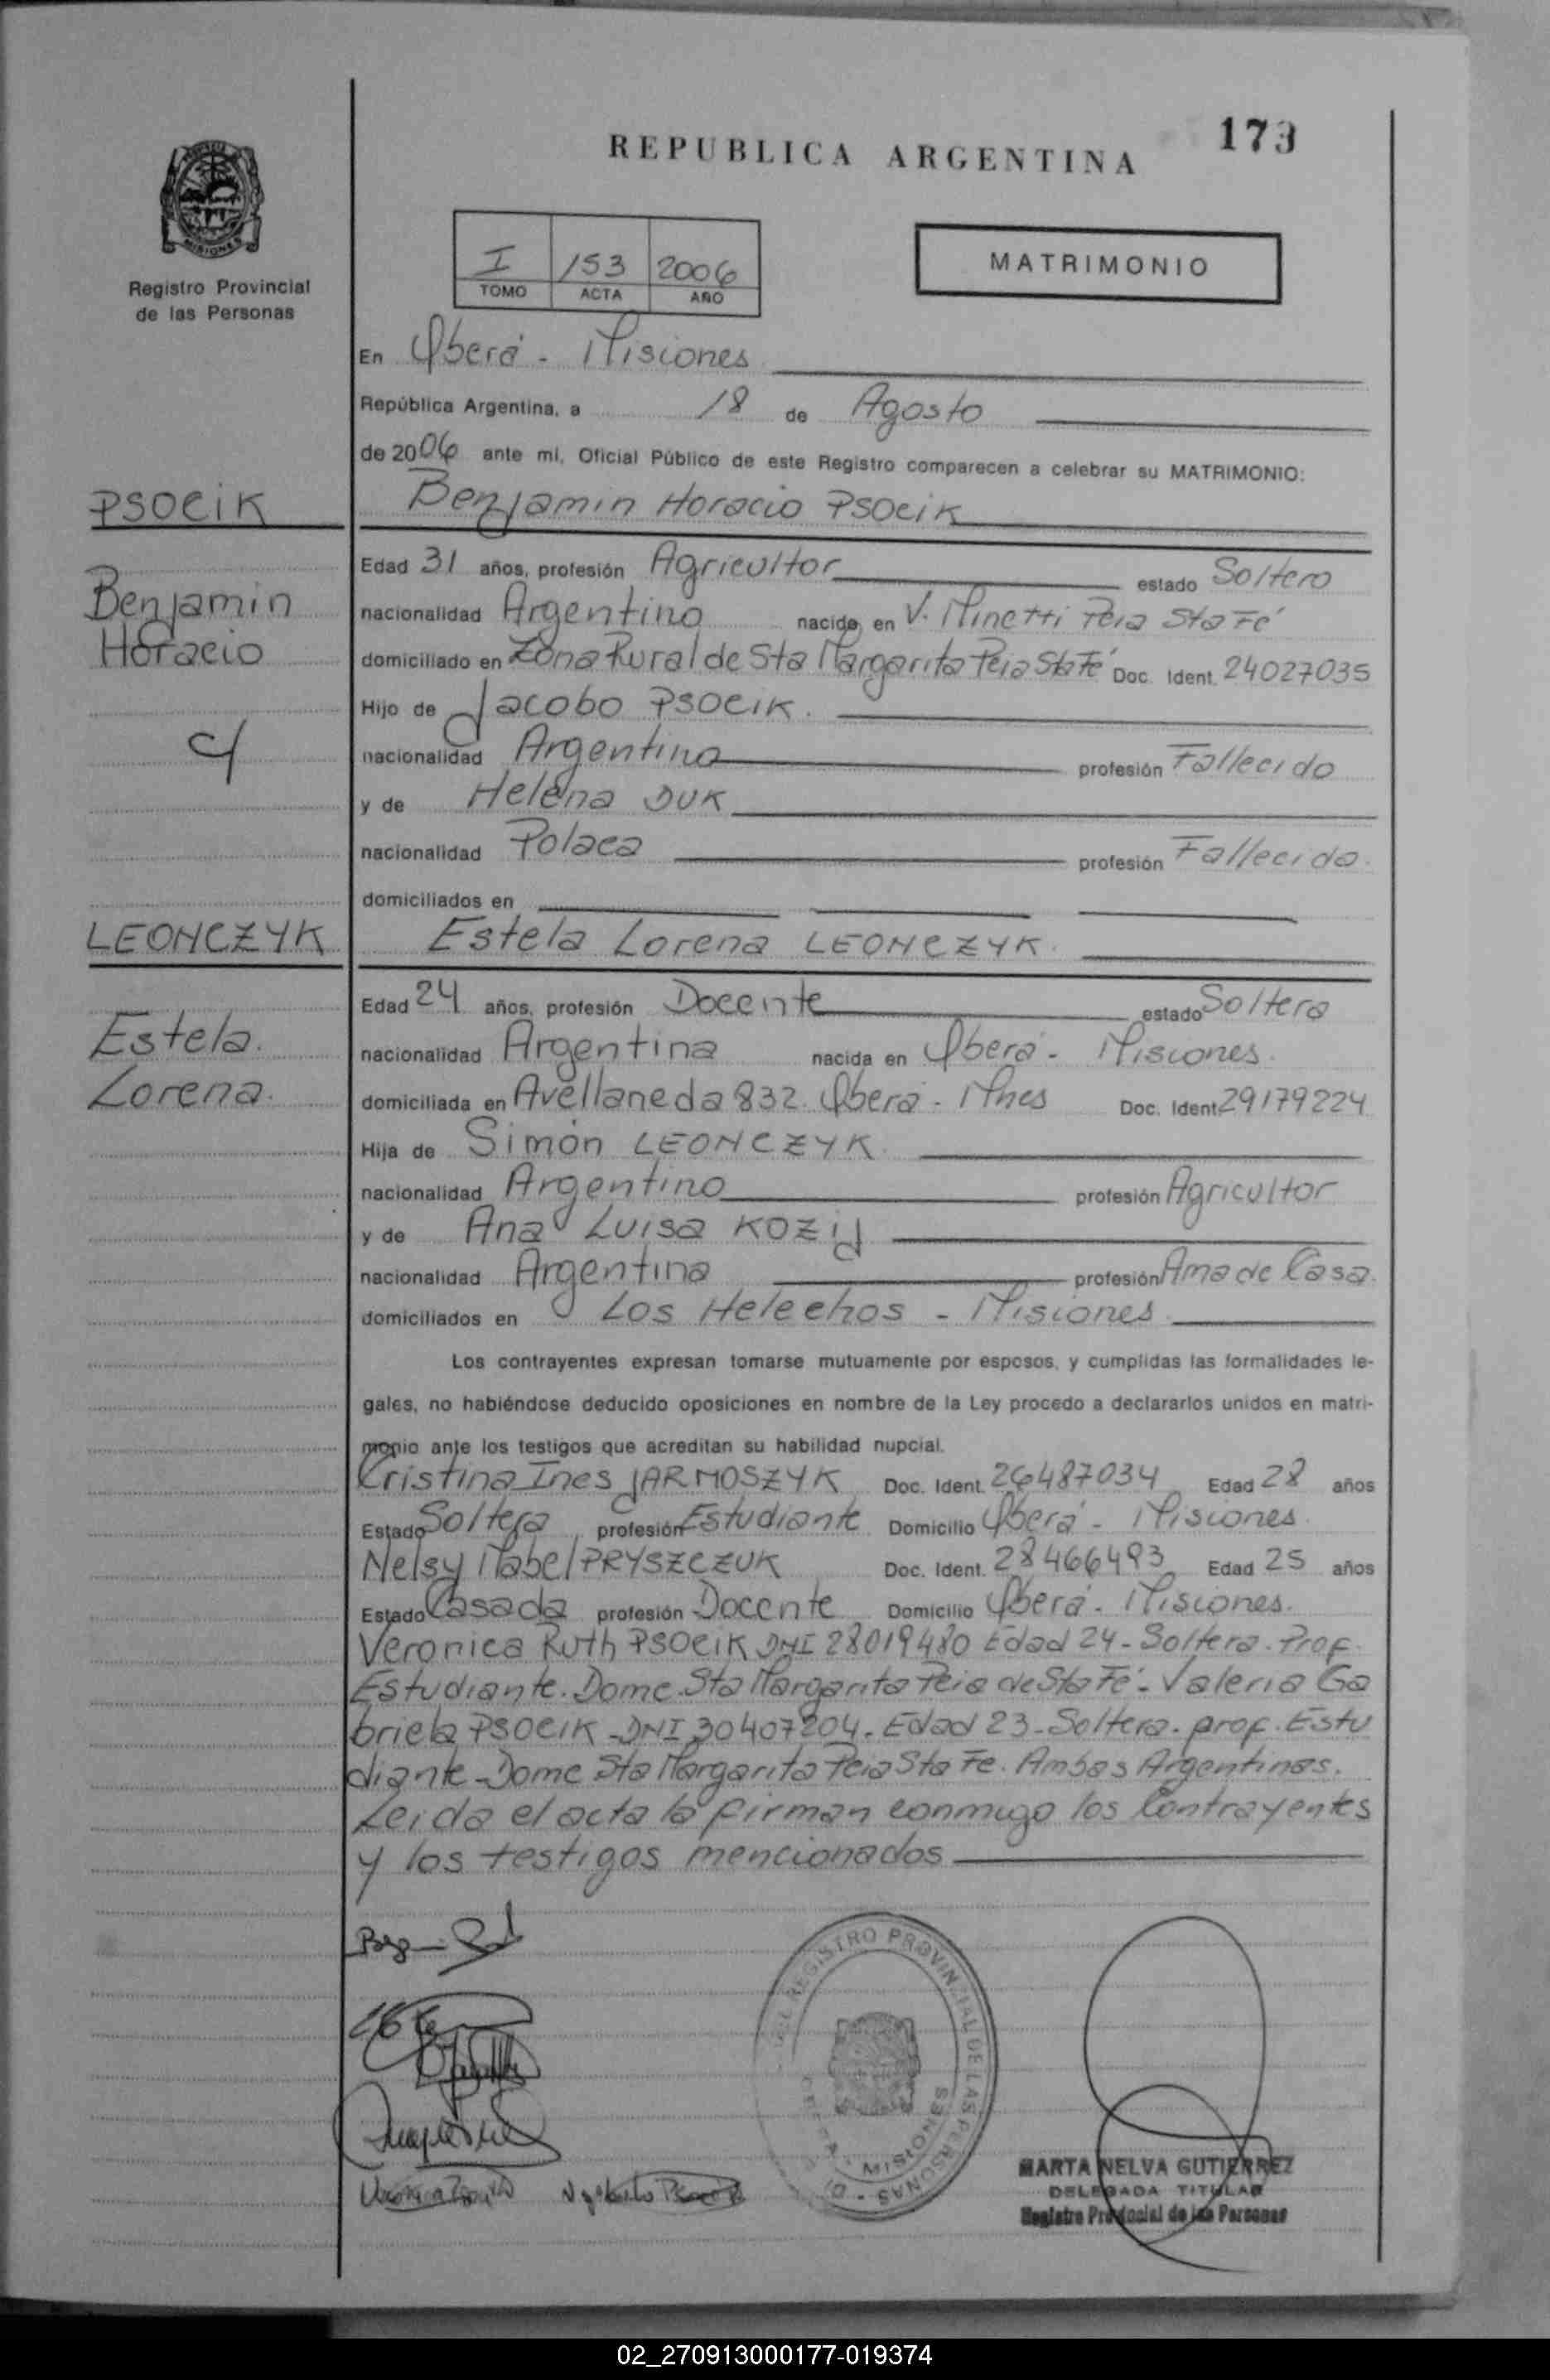 173
REPUBLICA ARGENTINA
MISIONES
Registro Provincial
de las Personas
I 153 2006
TOMO ACTA AÑO
MATRIMONIO
En Oberá - Misiones
República Argentina, a 18 de Agosto
de 2006 ante mi, Oficial Público de este Registro comparecen a celebrar su MATRIMONIO:
PSOCIK
Benjamin Horacio PSOCIK
Benjamin
Horacio
c/
Edad 31 años, profesión Agricultor estado Soltero
nacionalidad Argentino nacido en V. Minetti Pcia Sta Fé
domiciliado en Zona Rural de Sta Margarita Pcia Sta Fé Doc. Ident. 24027035
Hijo de Jacobo PSOCIK.
nacionalidad Argentino profesión Fallecido
y de Helena DUK
nacionalidad Polaca profesión Fallecida.
domiciliados en
LEONCZYK
Estela Lorena LEONCZYK.
Estela.
Lorena.
Edad 24 años, profesión Docente estado Soltera
nacionalidad Argentina nacida en Oberá - Misiones.
domiciliada en Avellaneda 832. Oberá - Mnes Doc. Ident. 29179224
Hija de Simón LEONCZYK.
nacionalidad Argentino profesión Agricultor
y de Ana Luisa KOZIJ
nacionalidad Argentina profesión Ama de Casa.
domiciliados en Los Helechos - Misiones
Los contrayentes expresan tomarse mutuamente por esposos, y cumplidas las formalidades le-
gales, no habiéndose deducido oposiciones en nombre de la Ley procedo a declararlos unidos en matri-
monio ante los testigos que acreditan su habilidad nupcial.
Cristina Ines JARMOSZYK Doc. Ident. 26487034 Edad 28 años
Estado Soltera, profesión Estudiante Domicilio Oberá - Misiones.
Nelsy Mabel PRYSZCZUK Doc. Ident. 28466493 Edad 25 años
Estado Casada profesión Docente Domicilio Oberá - Misiones.
Veronica Ruth PSOCIK DNI 28019480 Edad 24 - Soltera. Prof.
Estudiante. Domc. Sta Margarita Pcia de Sta Fé - Valeria Ga
briela PSOCIK - DNI 30407204. Edad 23 - Soltera. prof. Estu
diante - Domc Sta Margarita Pcia Sta Fe. Ambas Argentinas.
Leida el acta la firman conmigo los Contrayentes
y los testigos mencionados
REGISTRO PROVINCIAL DE LAS PERSONAS
MISIONES
MARTA NELVA GUTIERREZ
DELEGADA TITULAR
Registro Provincial de las Personas
02_270913000177-019374